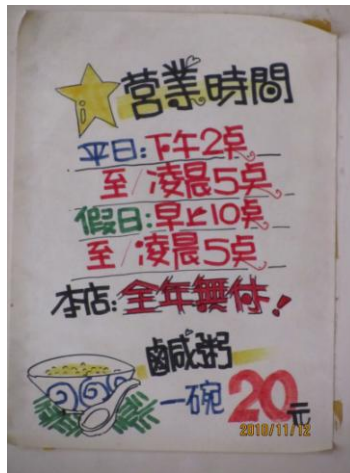 營業時間
平日:下午2点
至/凌晨5点
假日:早上10点
至/凌晨5点
本店:全年無休!
鹹粥
一碗20元
2010/11/12